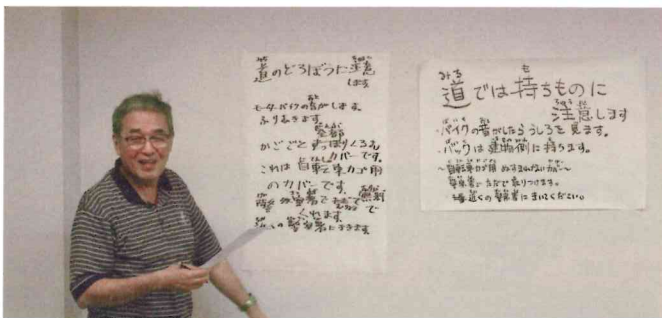 道のどろぼうに注意
します
モーターバイクの音がします。
ふりむきます。
全部
かごごとすっぽりくるむ
カバーです。
これは自転車カゴ用
のカバーです。
警察署で
無料で
くれます。
近くの警察署にききます
道では持ちものに
注意します
・バイクの音がしたらうしろを見ます。
・バックは建物側に持ちます。
〜自転車カゴ用 ぬすまれないカバー〜
警察署でただで取りつけます。
近くの警察署にきいてください。